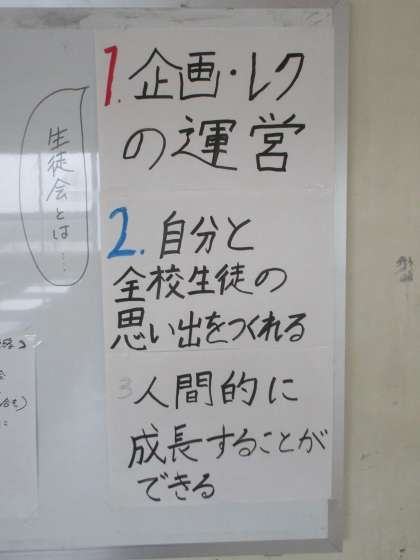 生徒会とは…
1.企画・レク
の運営
2.自分と
全校生徒の
思い出をつくれる
3 人間的に
成長することが
できる